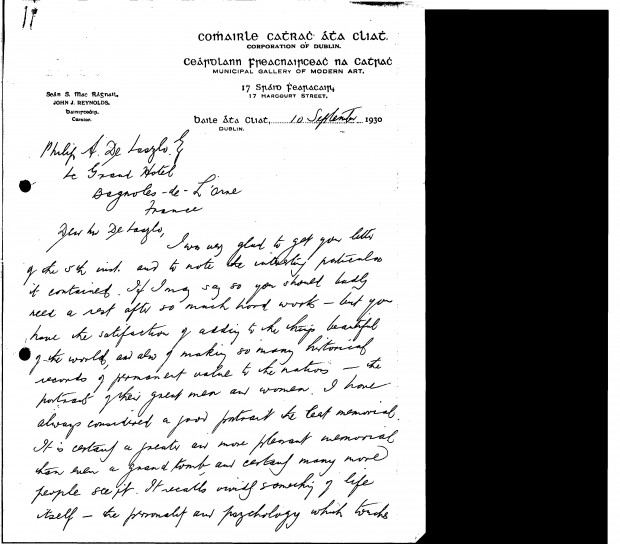 Comairle Catrac Áta Cliat.
CORPORATION OF DUBLIN.
Ceárdlann Freacnairceac na Catrac
MUNICIPAL GALLERY OF MODERN ART,
17 HARCOURT STREET,
JOHN J. REYNOLDS,
Curator.
Baile Áta Cliat, 10 September 1930
DUBLIN.
Philip A. De Laszlo. Esq
Le Grand Hotel
Bagnoles-de-L'Orne
France
Dear Mr De Laszlo,
I was very glad to get your letter
of the 5th inst. and to note the interesting particulars
it contained. If I may say so you should badly
need a rest after so much hard work – but you
have the satisfaction of adding to the things beautiful
of the world, and also of making so many historical
records of permanent value to the nations – the
portraits of their great men and women. I have
always considered a good portrait the best memorial.
It is certainly a greater and more pleasant memorial
than even a grand tomb, and certainly many more
people see it. It recalls vividly something of life
itself – the personality and psychology which